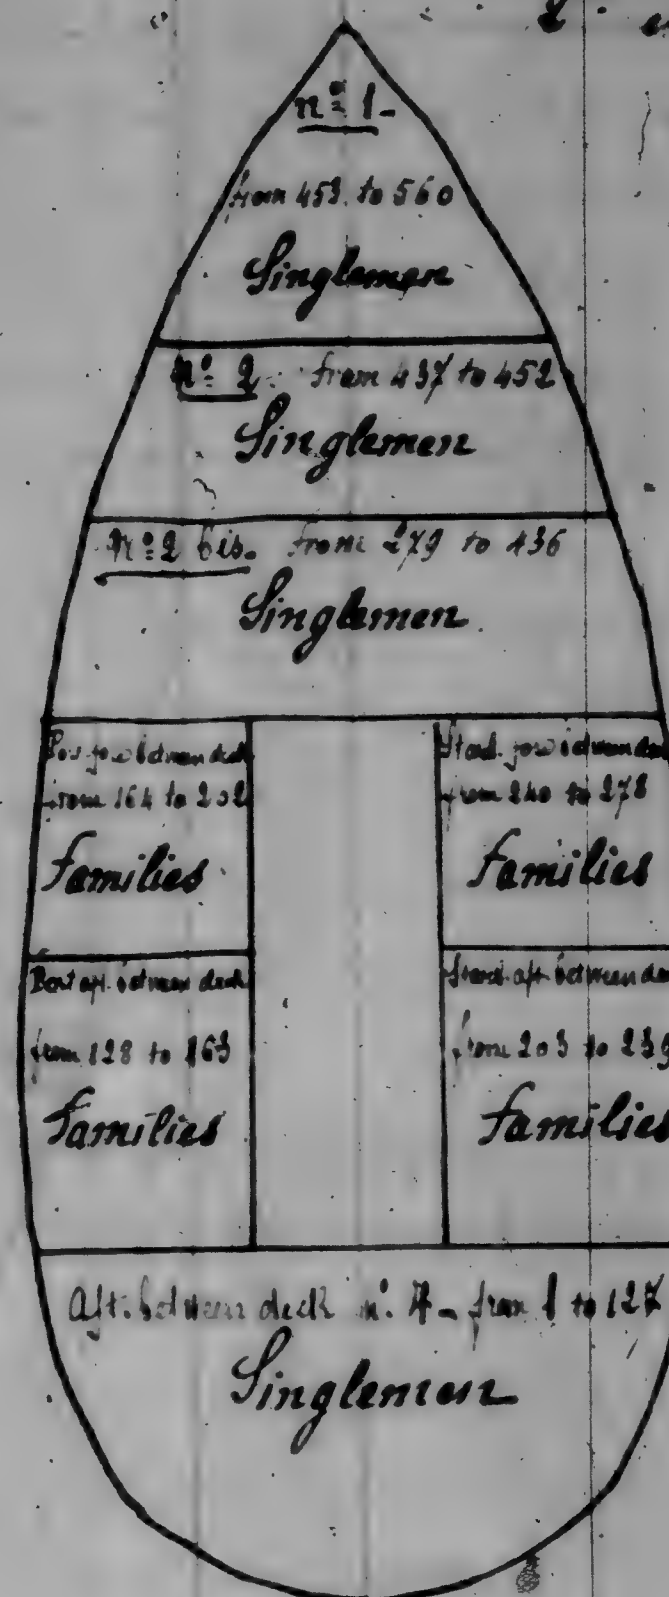 nº 1-
from 453 to 560
Singlemen
nº 2. from 437 to 452
Singlemen
Nº 2 bis. from 279 to 436
Singlemen
between deck
from 164 to 202
Families
Stard. forw between
from 240 to 278
Families
Port aft. between deck
from 128 to 163
Families
Stard. aft. between
from 203 to 239
Families
Aft. between deck nº. 4 - from 1 to 127
Singlemen